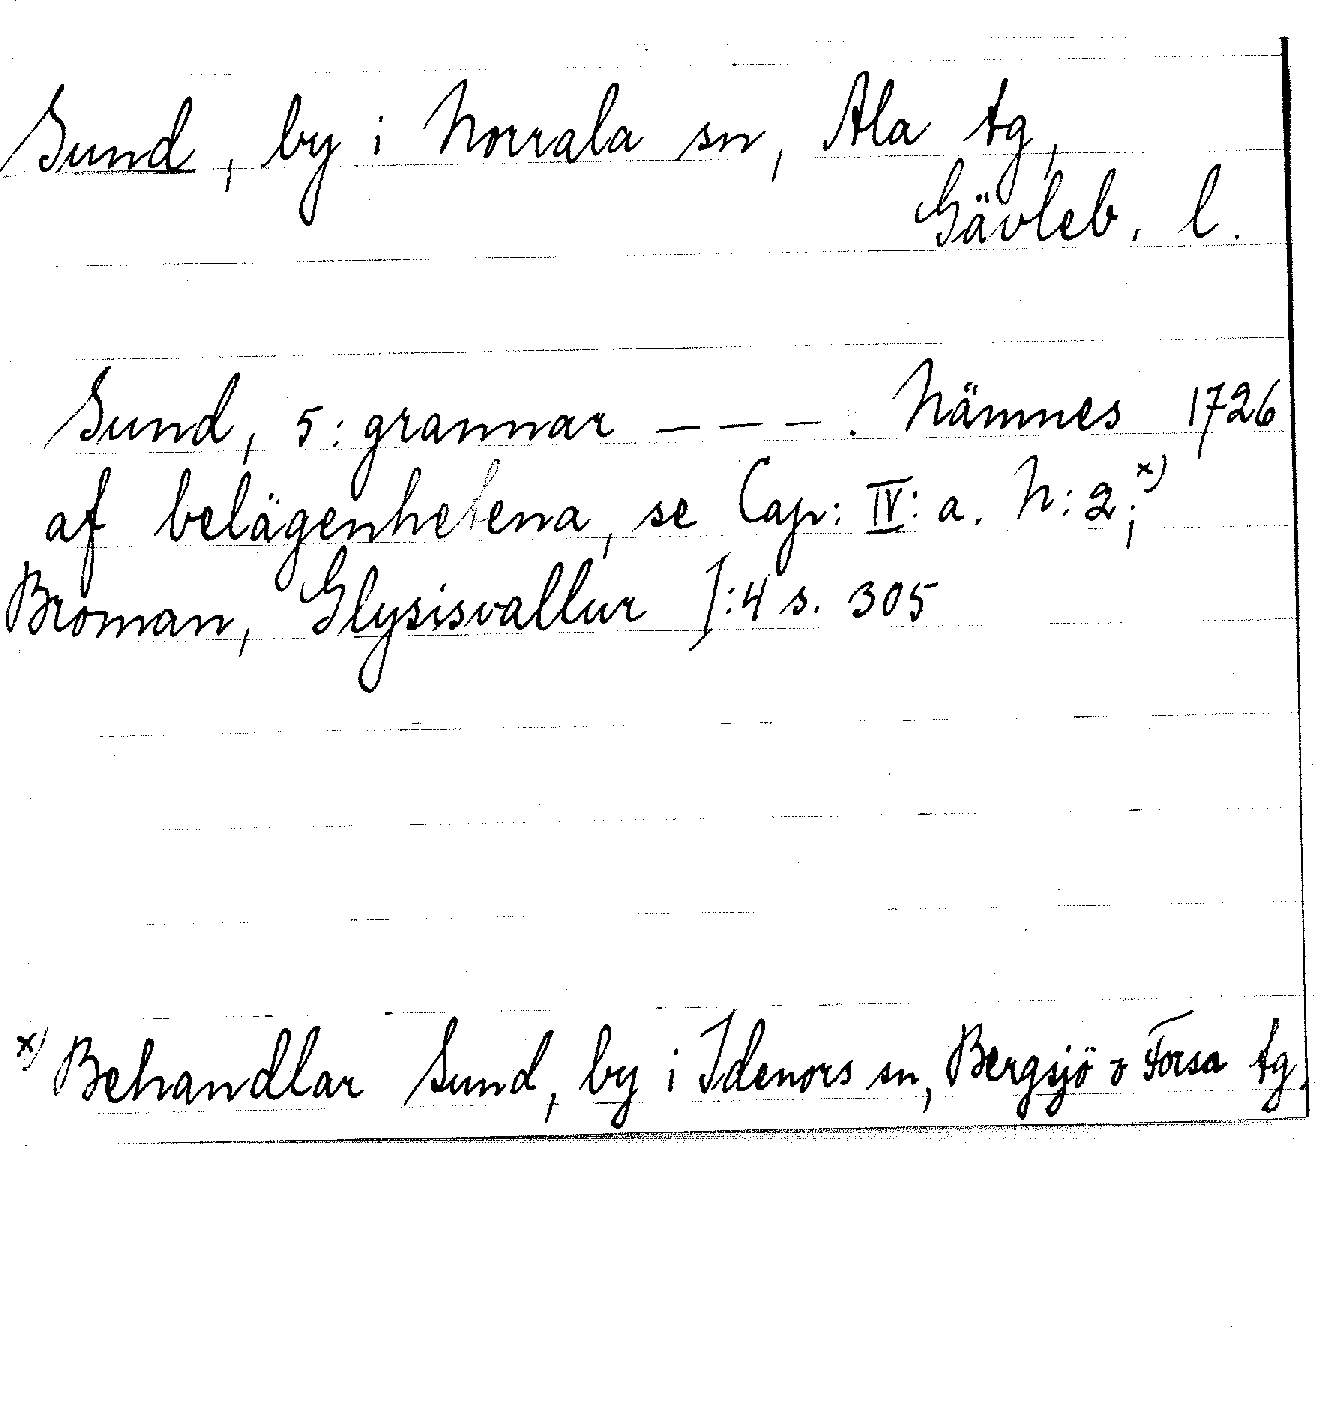 Sund, by i Norrala sn, Ala tg,
Gävleb. l.
Sund, 5: grannar – – – –. Nämnes 1726
af belägenhetena, se Cap: IV: a. N: 2;x)
Broman, Glysisvallur I:4 s. 305
x) Behandlar Sund, by i Idenors sn, Bergsjö o Forsa tg.